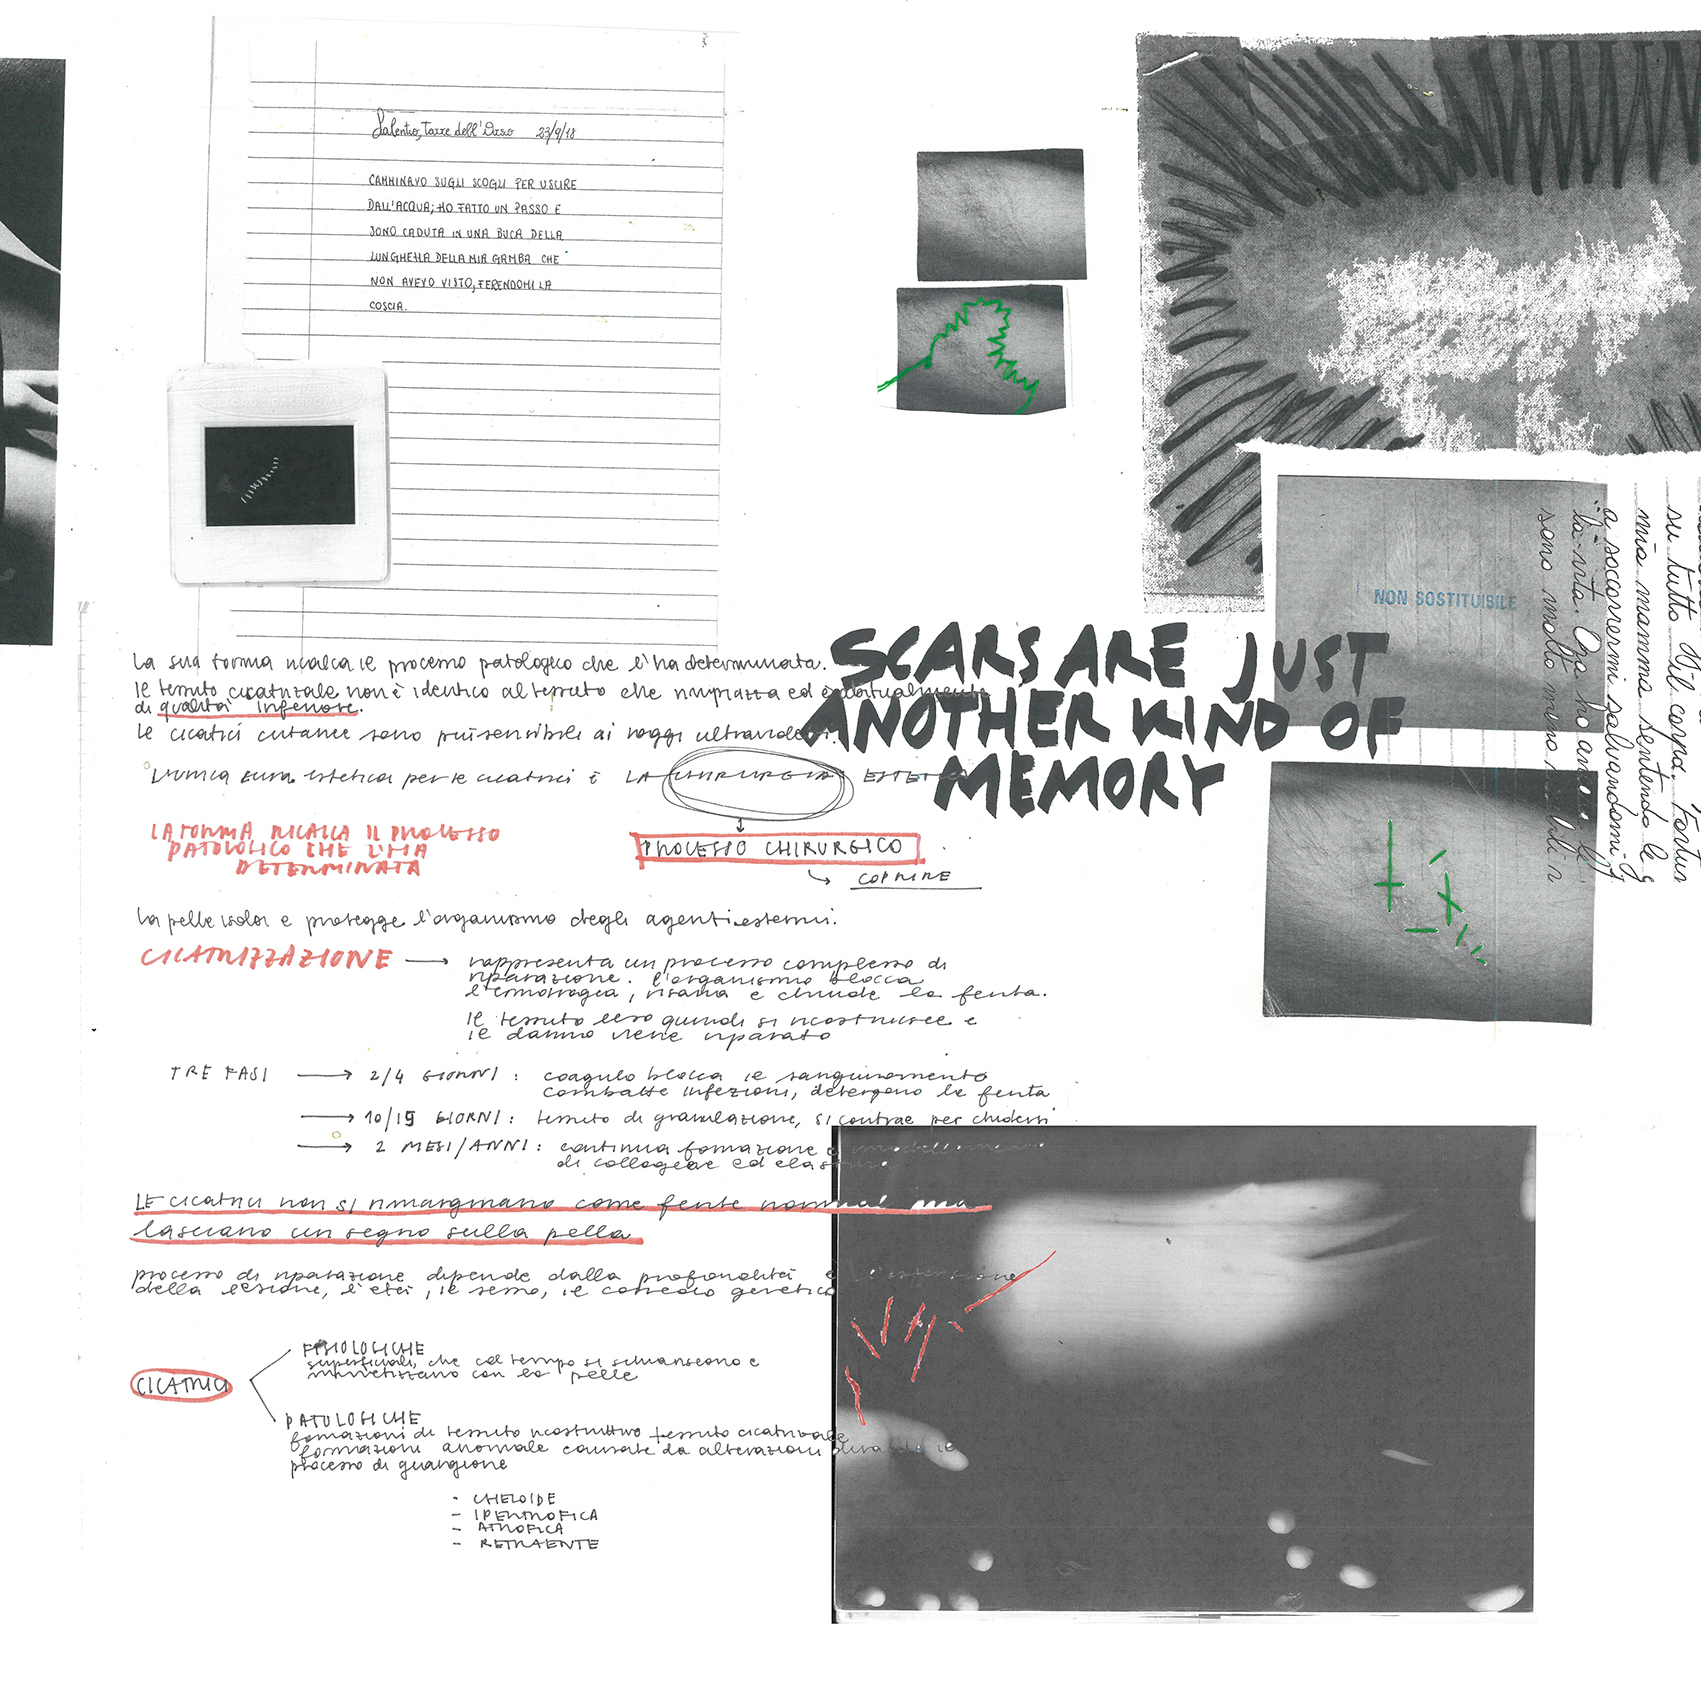 Salento, Torre dell'Orso 23/9/18
CAMMINAVO SUGLI SCOGLI PER USCIRE
DALL'ACQUA; HO FATTO UN PASSO E
SONO CADUTA IN UNA BUCA DELLA
LUNGHEZZA DELLA MIA GAMBA CHE
NON AVEVO VISTO, FERENDOMI LA
COSCIA.
ILFORD CIBACHROME
NON SOSTITUIBILE
su tutto il corpo.
mia mamma sentendo le
a soccorrermi salvandomi
la vita. Ora ho
sono molto meno
SCARS ARE JUST
ANOTHER KIND OF
MEMORY
La sua forma ricalca il processo patologico che l'ha determinata.
Il tessuto cicatriziale non è identico al tessuto che rimpiazza ed è abitualmente
di qualità inferiore.
Le cicatrici cutanee sono più sensibili ai raggi ultravioletti.
L'unica cura estetica per le cicatrici è LA CHIRURGIA ESTETICA
LA FORMA RICALCA IL PROCESSO
PATOLOGICO CHE L'HA
DETERMINATA
PROCESSO CHIRURGICO
COPRIRE
La pelle isola e protegge l'organismo degli agenti esterni.
CICATRIZZAZIONE → rappresenta un processo complesso di
riparazione. L'organismo blocca
l'emorragia, risana e chiude la ferita.
Il tessuto leso quindi si ricostruisce e
il danno viene riparato
TRE FASI → 2/4 GIORNI: coagulo blocca il sanguinamento
combatte infezioni, detergono la ferita
→ 10/15 GIORNI: tessuto di granulazione, si contrae per chiudersi
→ 2 MESI/ANNI: continua formazione e rimodellamento
di collagene ed elastina
LE cicatrici non si rimarginano come ferite normali ma
lasciano un segno sulla pelle
processo di riparazione dipende dalla profondità e l'estensione
della lesione, l'età, il sesso, il corredo genetico
CICATRICI
FISIOLOGICHE
superficiali, che col tempo si schiariscono e
mimetizzano con la pelle
PATOLOGICHE
formazioni di tessuto ricostruttivo tessuto cicatriziale
formazioni anomale causate da alterazioni durante il
processo di guarigione
- CHELOIDE
- IPERTROFICA
- ATROFICA
- RETRAENTE